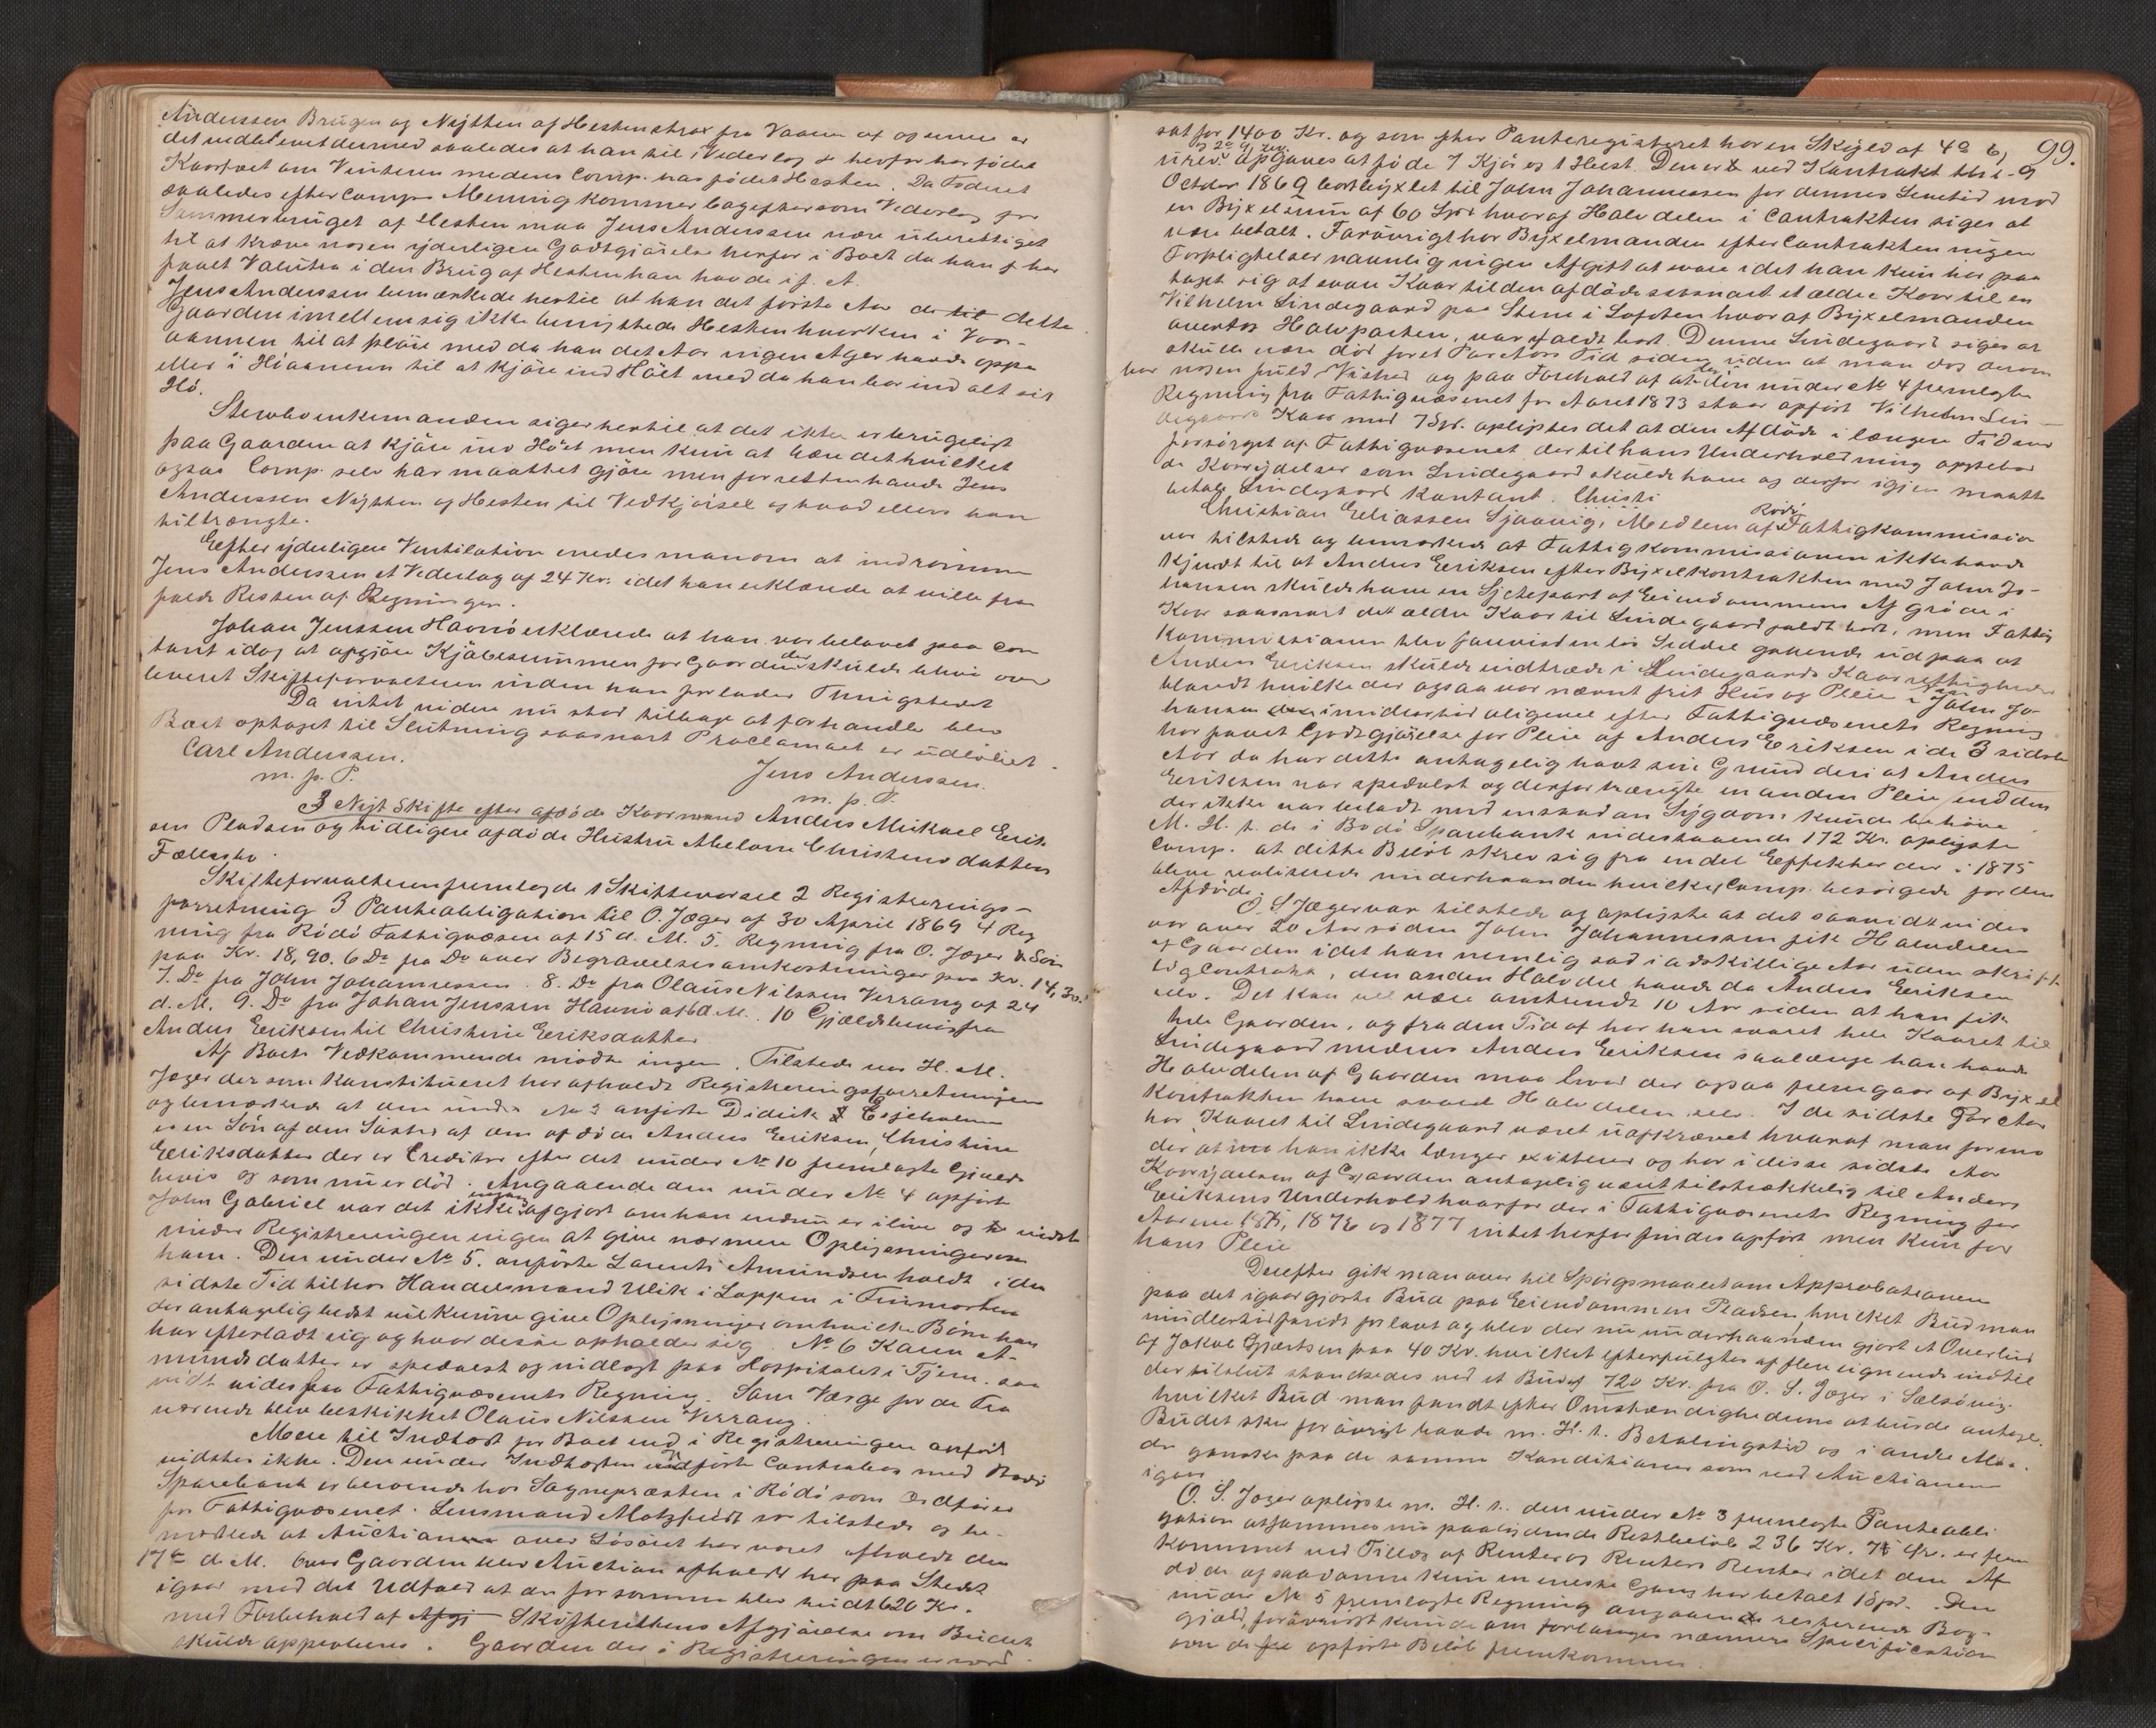 Anderssen Brugen og Nytten af Hesten strax fra Vaaren af og senere er
det indblevet dermed saaledes at han til Vederlag herfor har födet
Kaarfæet om Vinteren medens Comp. har födet Hesten. Da Foderet
saaledes efter Comps Mening kommer bagefter som Vederlag for
Sommerbruget af Hesten maa Jens Anderssen være uberettiget
til at kræve nogen yderligere Godtgjörelse herfor i Boet da han har
faaet Valuta i den Brug af Hesten han havde if. A.
Jens Anderssen bemærkede hertil at han det förste Aar de delte
Gaarden imellem sig ikke benyttede Hesten hverken i Vor-
aannen til at plöie med da han det Aar ingen Ager havde oppe
eller i Höaannen til at kjöre ind Höet med da han bar ind alt sit
Hö.
Stervboenkemanden siger hertil at det ikke er brugeligt
paa Gaarden at kjöre ind Höet men kun at bære det hvilket
ogsaa Comp. selv har maattet gjöre men forresten havde Jens
Anderssen Nytten af Hesten til Vedkjörsel og hvad ellers han
tiltrængte.
Efter yderligere Ventilation enedes man om at indrömme
Jens Anderssen et Vederlag af 24 Kr. idet han erklærede at ville fra
falde Resten af Regningen.
Johan Jenssen Havnö erklærede at han var belavet paa con
tant idag at opgjöre Kjöbesummen for Gaarden der skulde blive over
leveret Skifteforvalteren inden han forlader Thingstedet
Da intet videre nu stod tilbage at forhandle blev
Boet optaget til Slutning saasnart Proclamaet er udlöbet.
Carl Anderssen. Jens Anderssen.
m. p. P. m. p. P.
3 Nyt Skifte efter afdöde Kaarmand Anders Mikael Erik-
sen Pladsen og tidligere afdöde Hustru Abelone Christensdatters
Fællesbo.
Skifteforvalteren fremlagde 1 Skiftevarsel 2 Registrerings-
forretning 3 Panteobligation til O. Jæger af 30 April 1869 4 Reg
ning fra Rödö Fattigvæsen af 15 d. M. 5. Regning fra O. Jæger & Sön
paa Kr. 18,90. 6 Do fra Do over Begravelsesomkostninger paa Kr. 14,30.
7. Do fra John Johannessen. 8. Do fra Olaus Nilssen Verrang af 24
d. M. 9. Do fra Johan Jenssen Havnö af 6 d. M. 10 Gjældsbevis fra
Anders Eriksen til Christine Eriksdatter
Af Boets Vedkommende mödte ingen. Tilstede var H. M.
Jæger der som konstitueret har afholdt Registreringsforretningen
og bemærkede at den under No 3 anförte Didrik
er en Sön af den Söster af den afdöde Anders Eriksen, Christine
Eriksdatter der er Creditor efter det under No 10 fremlagte Gjælds
bevis og som nu er död. Angaaende den under No 4 opförte
John Gabriel var det ikke afgjort om han endnu er ilive og vidste
under Registreringen ingen at give nærmere Oplysninger om
ham. Den under No 5. anförte Laurents Amundsen holdt i den
sidste Tid til hos Handelsmand Ulik i Loppen i Finmarken
der antagelig bedst vil kunne give Oplysninger om hvilke Börn han
har efterladt sig og hvor disse opholder sig. No. 6 Karen A-
mundsdatter er spedalsk og indlagt paa Hospitalet i Tjern. saa
vidt vides paa Fattigvæsenets Regning. Som Værge for de Fra
værende blev beskikket Olaus Nilssen Verrang.
Mere til Indtægt for Boet end i Registreringen anfört
vidstes ikke. Den under Indtægten anförte Contrabog med Bodö
Sparebank er beroende hos Sognepræsten i Rödö som Ordförer
for Fattigvæsenet. Lensmand Motzfeldt var tilstede og be-
mærkede at Auctionen over Lösöret har været afholdt den
17de d. M. Over Gaarden blev Auction afholdt her paa Stedet
igaar med det Udfald at den for samme blev budt 620 Kr.
med Forbehold af Skifterettens Afgjörelse om Budet
skulde approberes. Gaarden der i Registreringen er vurd-
99.
sat for 1400 Kr. og som efter Panteregisteret har en Skyld af 4 6
urev. opgaves at föde 7 Kjör og 1 Hest. Den er ved Kontrakt thi. 9
October 1869 bortbyxlet til John Johannessen for dennes Levetid mod
en Byxelsum af 60 Spd hvoraf Halvdelen i Contrakten siges at
være betalt. Forövrigt har Byxelmanden efter Contrakten ingen
Forpligtelser navnlig ingen Afgift at svare idet han kun har paa
taget sig at svare Kaar til den afdöde saasnart et ældre Kaar til en
Vilhelm Lindegaard paa Stene i Lofoten hvoraf Byxelmanden
overtog Halvparten, var faldt bort. Denne Lindegaard siges at
skulle være död for et Par Aars Tid siden, uden at man dog derom
har nogen fuld Vished og paa Forehold af at der i den under No 4 fremlagte
Regning fra Fattigvæsenet for Aaret 1873 staar opfört Vilhelm Lin-
degaards Kaar med 7 Spd. oplystes det at den Afdöde i længere Tid var
forsörget af Fattigvæsenet, der til hans Underholdning oppebar
de Kaarydelser som Lindegaard skulde have og derfor igjen maatte
betale Lindegaard kontant. Christi
Christian Eliassen Sjaavig, Medlem af Rödö Fattigkommission
var tilstede og bemærkede at Fattigkommissionen ikke havde
Kjendt til at Anders Eriksen efter Byxelkontrakten med John Jo-
hansen skulde have en Sjettepart af Eiendommens Afgröde i
Kaar saasnart det ældre Kaar til Lindegaard faldt bort, men Fattig
kommissionen blev forevist en lös Seddel gaaende ud paa at
Anders Eriksen skulde indtræde i Lindegaards Kaarrettigheder
blandt hvilke der ogsaa var nævnt frit Hus og Pleie. Naar John Jo-
hansen imidlertid aligevel efter Fattigvæsenets Regning
har faaet Godtgjörelse for Pleie af Anders Eriksen i de 3 sidste
Aar da har dette antagelig havt sin Grund deri at Anders
Eriksen var spedalsk og derfor trængte en anden Pleie end den
der ikke var beladt med en saadan Sygdom kunde behöve.
M. H. t. de i Bodö Sparebank indestaaende 172 Kr. oplyste
Comp. at dette Belöb skrev sig fra endel Effekter der i 1875
bleve realiserede underhaanden hvilket Comp. besörgede for den
Afdöde.
O. S. Jæger var tilstede og oplyste at det saavidt vides
var over 20 Aar siden John Johannessen fik Halvdelen
af Gaarden idet han nemlig sad i adskillige Aar uden skrift-
lig Contrakt, den anden Halvdel havde da Anders Eriksen
selv. Det kan vel være omtrendt 10 Aar siden at han fik
hele Gaarden, og fra den Tid af har han svaret hele Kaaret til
Lindegaard medens Anders Eriksen saalænge han havde
Halvdelen af Gaarden maa hvad der ogsaa fremgaar af Byxel
kontrakten have svaret Halvdelen selv. I de sidste Par Aar
har Kaaret til Lindegaard været uafkrævet hvoraf man formo
der at han ikke længer existerer og har i disse sidste Aar
Kaarydelsen af Gaarden antagelig været tilstrækkelig til Anders
Eriksens Underhold hvorfor der i Fattigvæsenets Regning for
Aarene 1875, 1876 og 1877 intet herfor findes opfört men kun for
hans Pleie
Derefter gik man over til Spörgsmaalet om Approbationen
paa det igaar gjorte Bud paa Eiendommen Pladsen, hvilket Bud man
imidlertid fandt for lavt og blev der nu underhaanden gjort et Overbud
af Jakob Gjertsen paa 40 Kr. hvilket efterfulgtes af flere lignende indtil
der tilslut standsedes ved et Bud af 720 Kr. fra O. S. Jæger i Selsövig.
hvilket Bud man fandt efter Omstændighederne at burde antages.
Budet sker forövrigt baade m. H. t. Betalingstid og i andre Maa-
der ganske paa de samme Konditioner som ved Auctionen
igaar
O. S. Jæger oplyste m. H. t. den under No 3 fremlagte Panteobli
gation at sammes nu paalydende Restbelöb 236 Kr. 75 Ör. er frem
kommet ved Tillæg af Renter og Renters Renter idet den Af
döde af saadanne kun en eneste Gang har betalt 1 Spd. Den
under No 5 fremlagte Regning angaaende resterende Bog-
gjæld, forövrigt kunde om forlanges nærmere Specification
over de opförte Belöb fremkomme.